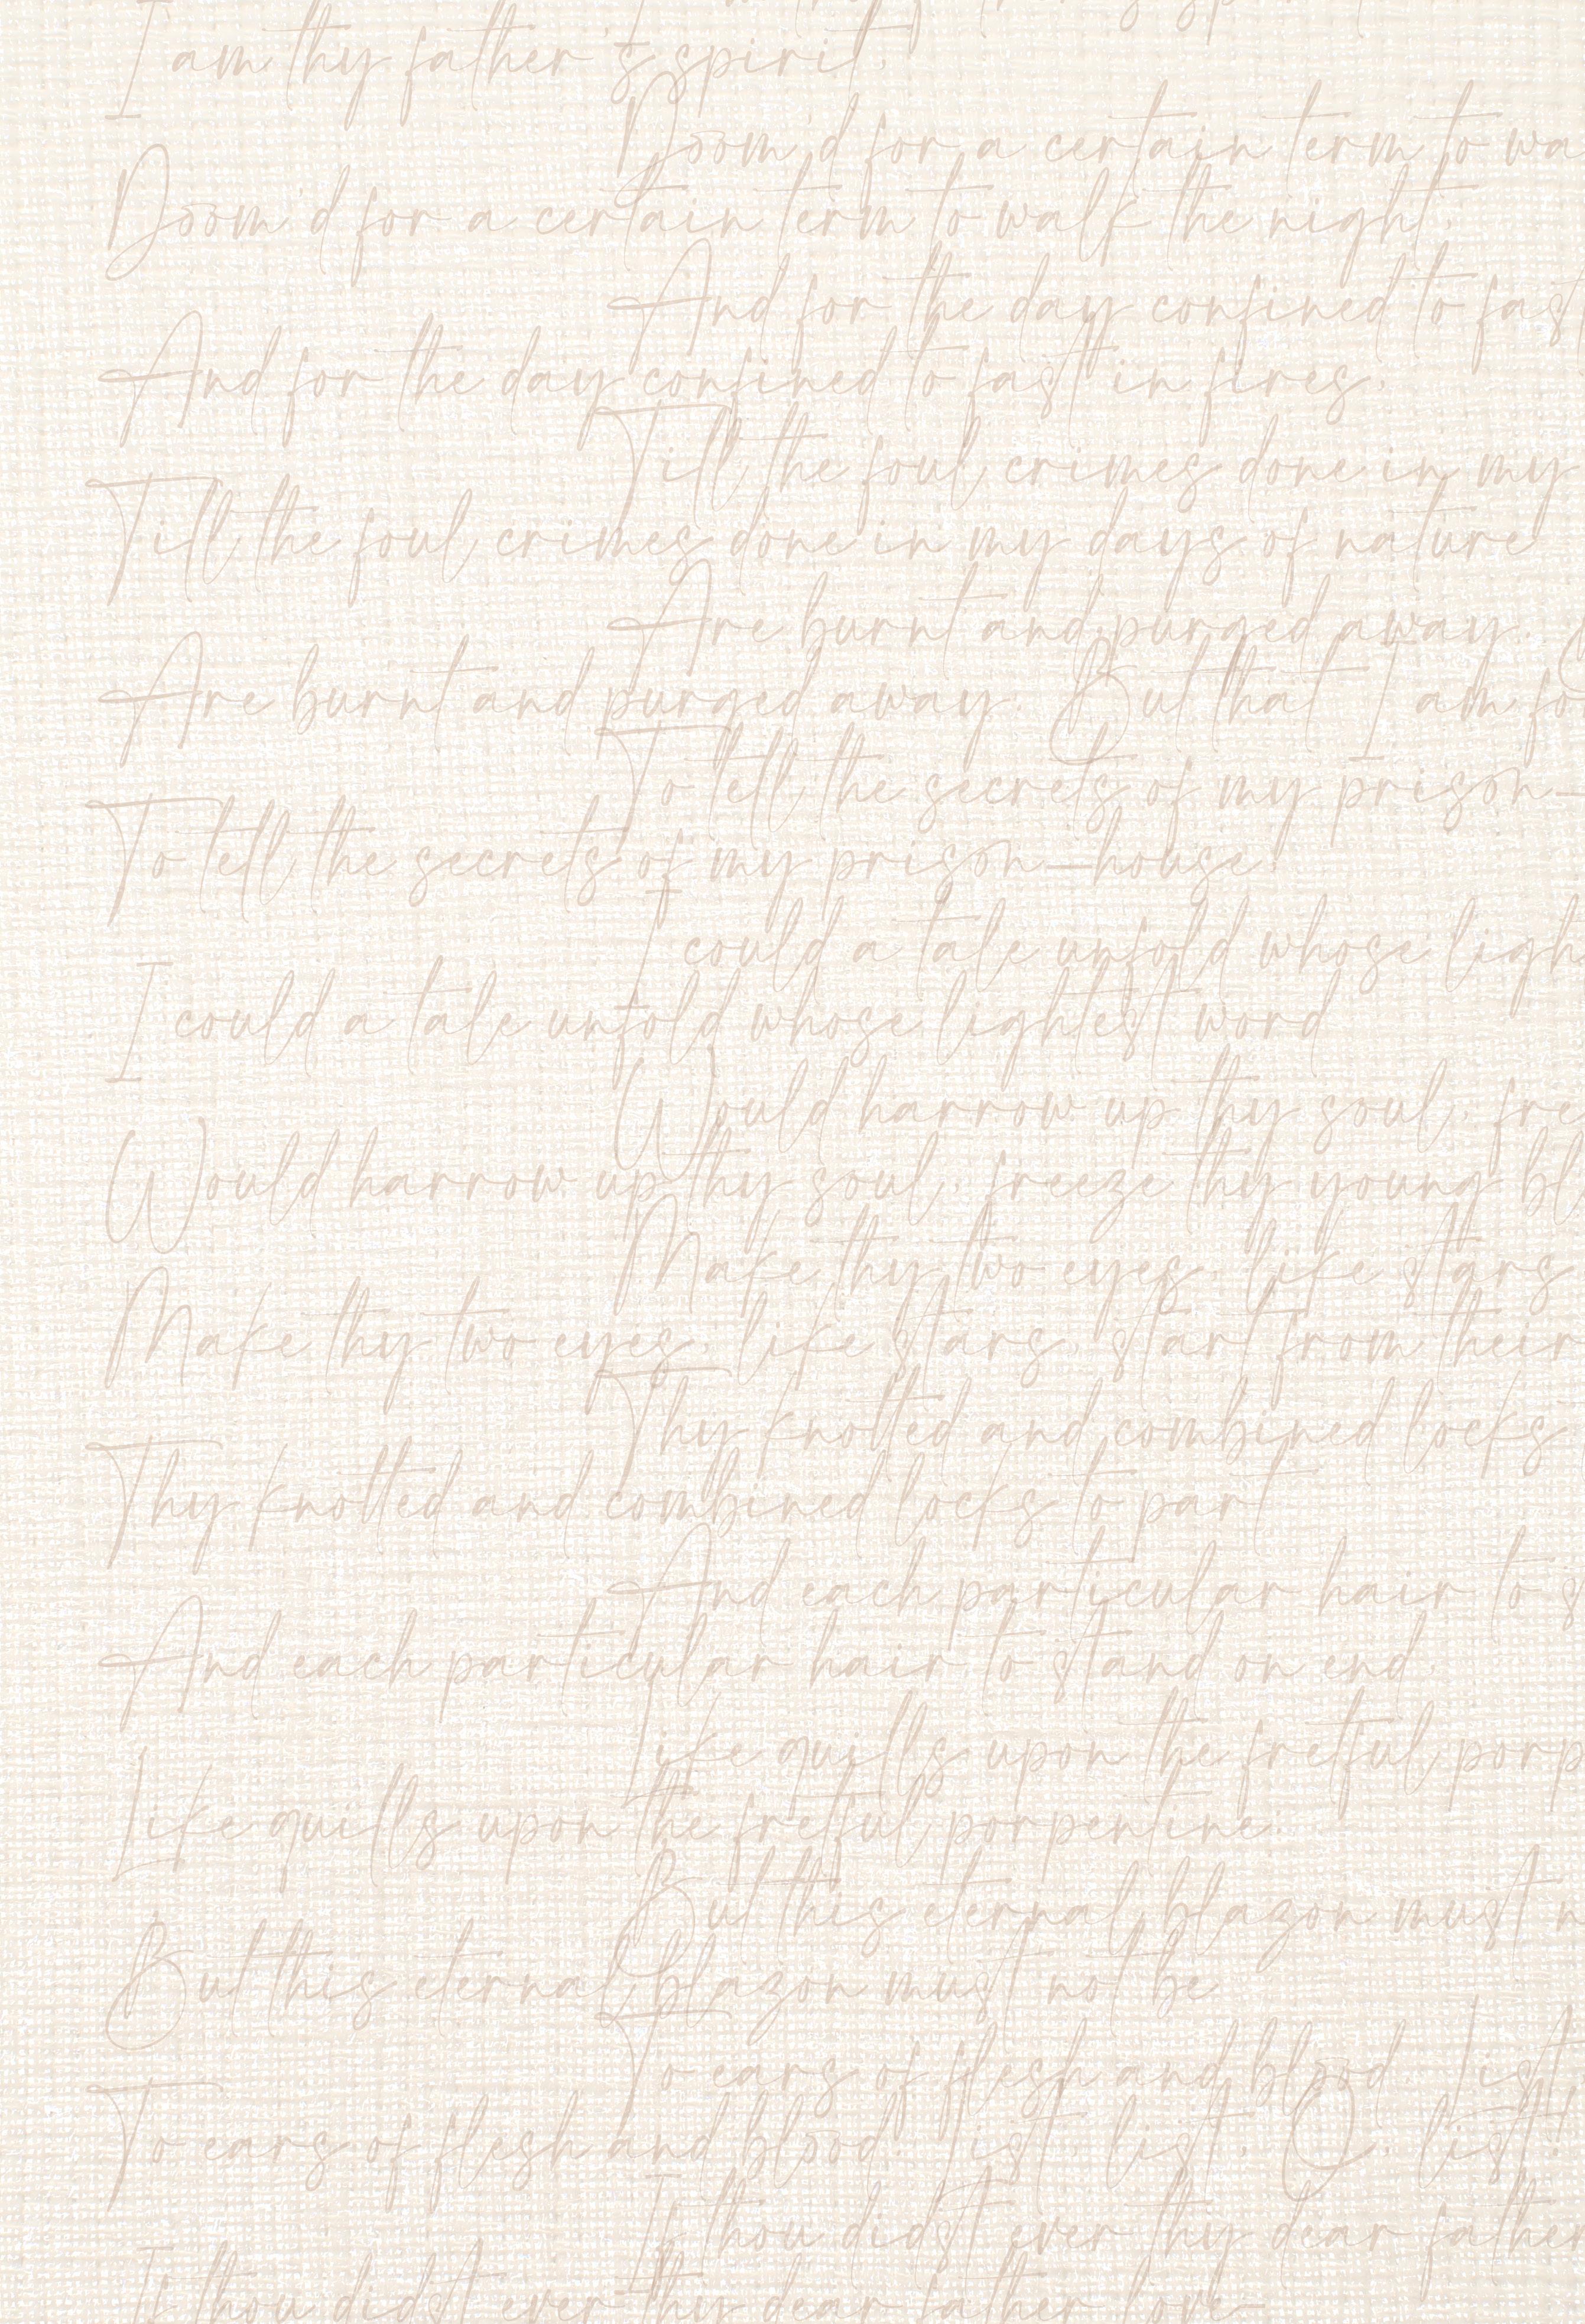 I am thy father's spirit,
Doom'd for a certain term to wa
Doom'd for a certain term to walk the night,
And for the day confined to fast
And for the day confined to fast in fires,
Till the foul crimes done in my
Till the foul crimes done in my days of nature
Are burnt and purged away.
Are burnt and purged away. But that I am fo
To tell the secrets of my prison-
To tell the secrets of my prison-house,
I could a tale unfold whose ligh
I could a tale unfold whose lightest word
Would harrow up thy soul, fre
Would harrow up thy soul, freeze thy young bl
Make thy two eyes, like stars
Make thy two eyes, like stars, start from their
Thy knotted and combined locks
Thy knotted and combined locks to part
And each particular hair to s
And each particular hair to stand on end,
Like quills upon the fretful porp
Like quills upon the fretful porpentine:
But this eternal blazon must n
But this eternal blazon must not be
To ears of flesh and blood. List
To ears of flesh and blood. List, list, O, list!
If thou didst ever thy dear father
If thou didst ever thy dear father love